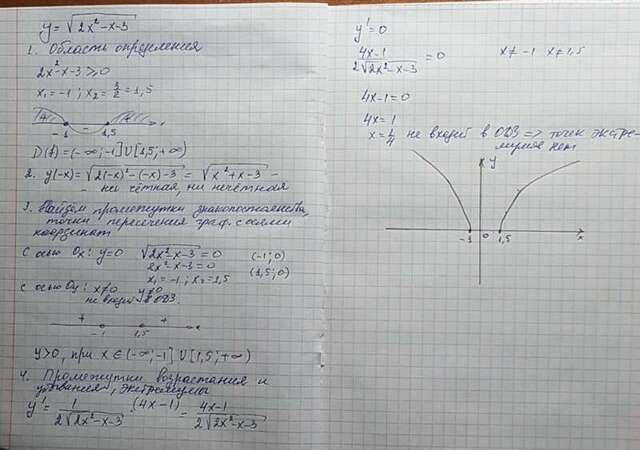 y = √(2x²-x-3)
1. Область определения
2x²-x-3 ≥ 0
x₁ = -1 ; x₂ = 3/2 = 1,5
-1 - 1,5 x
D(f) = (-∞; -1] ∪ [1,5; +∞)
2. y(-x) = √(2(-x)²-(-x)-3) = √(x²+x-3) -
- ни чётная, ни нечётная
3. Найдём промежутки знакопостоянства,
точки пересечения граф. с осями
координат
с осью Ox: y=0 √(2x²-x-3) = 0 (-1; 0)
2x²-x-3=0 (1,5; 0)
x₁ = -1; x₂ = 1,5
с осью Oy: x≠0
не входит в ОДЗ.
+ -1 1,5 + x
y>0, при x ∈ (-∞; -1] ∪ [1,5; +∞)
4. Промежутки возрастания и
убывания, экстремумы
y' = 1/(2√(2x²-x-3)) · (4x-1) = (4x-1)/(2√(2x²-x-3))
y' = 0
(4x-1)/(2√(2x²-x-3)) = 0 x ≠ -1 x ≠ 1,5
4x-1=0
4x=1
x = 1/4 не входит в ОДЗ => точек экстре-
мумов нет
y
-1 0 1,5 x